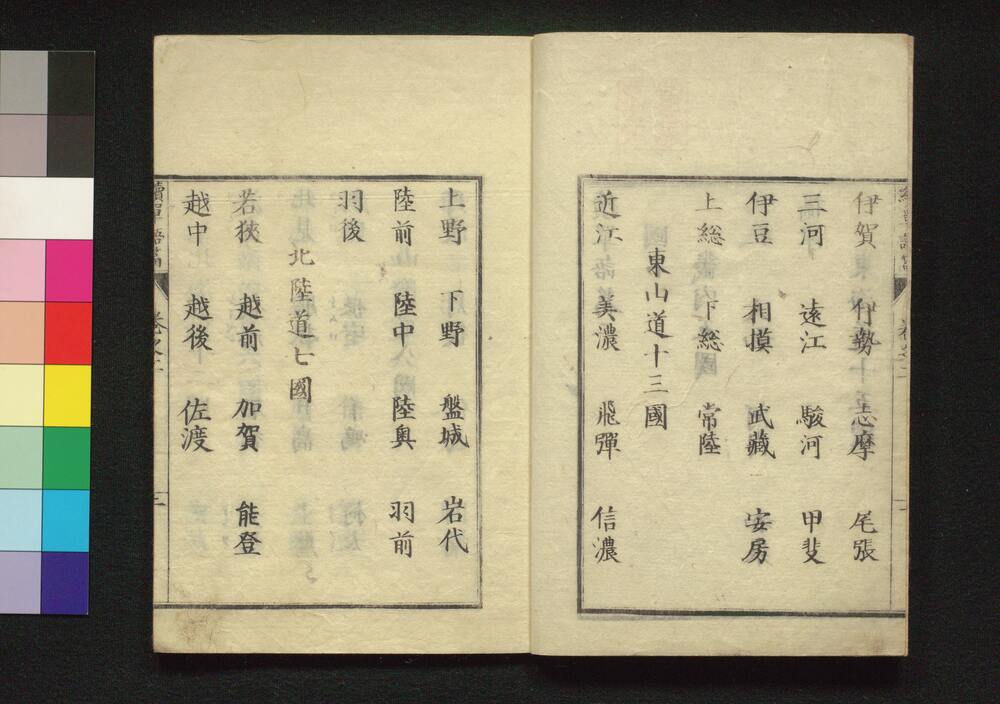 伊賀 伊勢 志摩 尾張
三河 遠江 駿河 甲斐
伊豆 相摸 武藏 安房
上総 下総 常陸
東山道十三國
近江 美濃 飛彈 信濃
上野 下野 盤城 岩代
陸前 陸中 陸奥 羽前
羽後
北陸道七國
若狹 越前 加賀 能登
越中 越後 佐渡